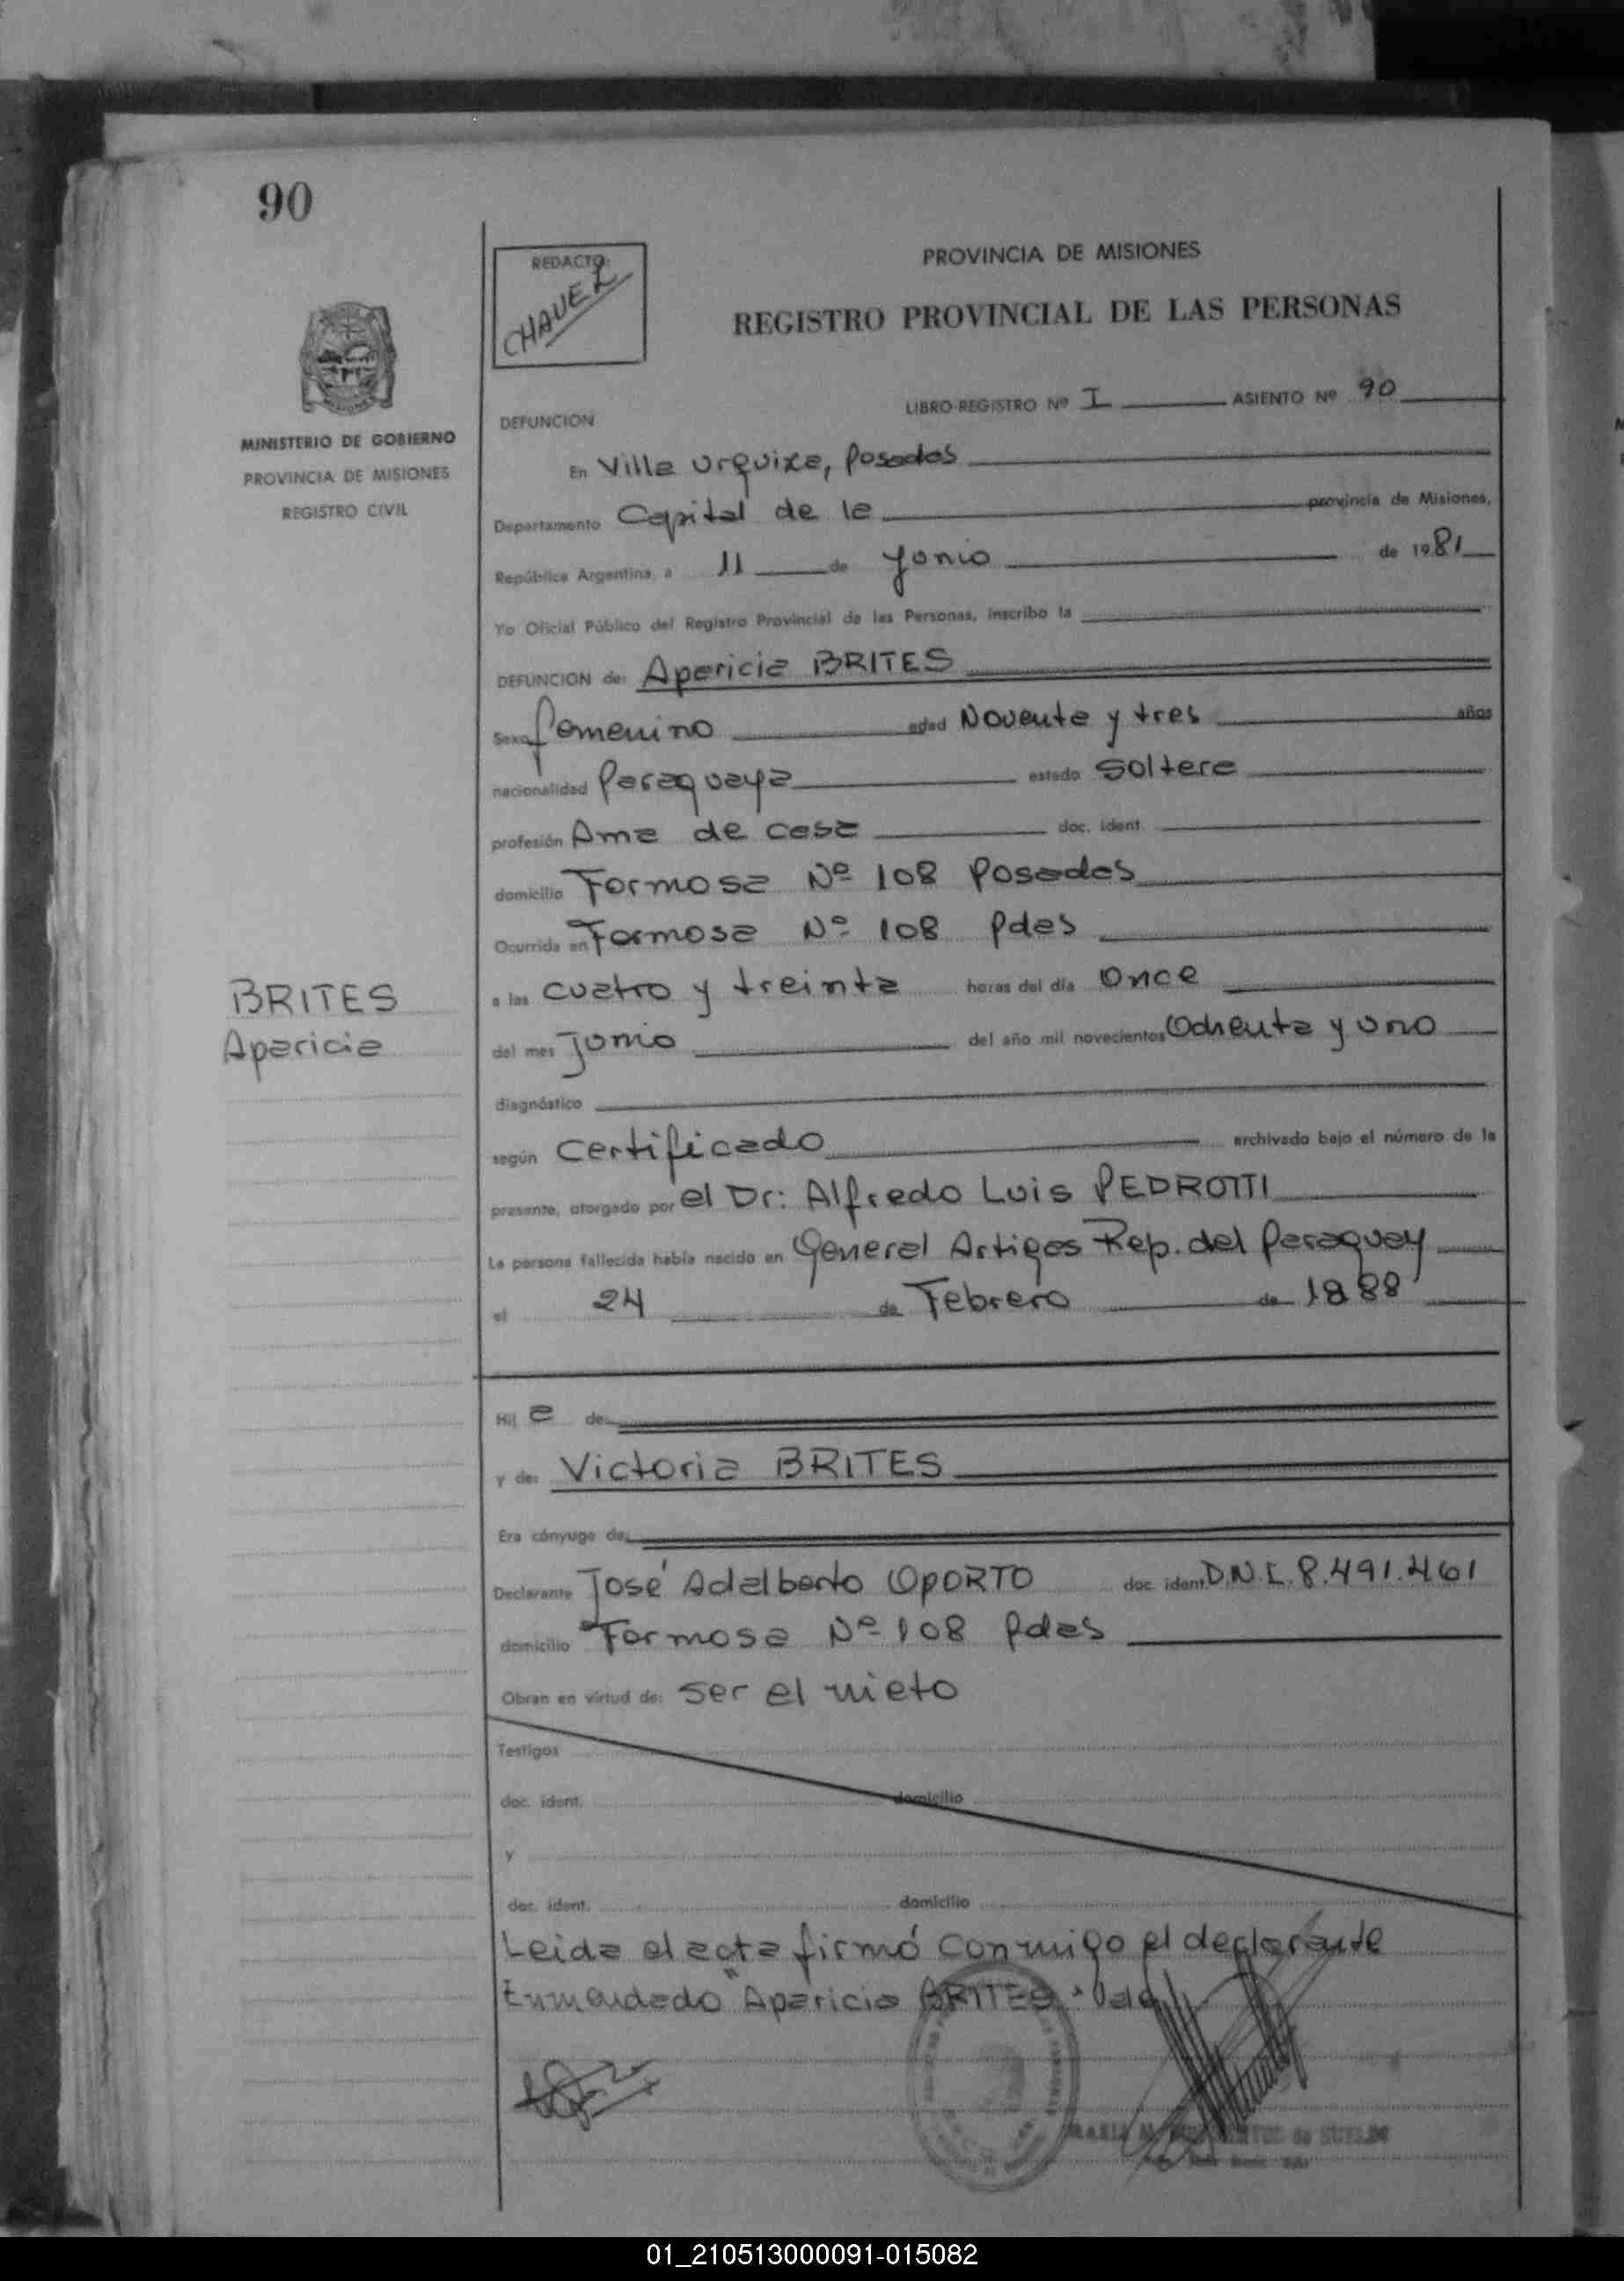 90
REDACTO:
CHAVEZ
PROVINCIA DE MISIONES
REGISTRO PROVINCIAL DE LAS PERSONAS
MINISTERIO DE GOBIERNO
PROVINCIA DE MISIONES
REGISTRO CIVIL
LIBRO-REGISTRO Nº I ASIENTO Nº 90
DEFUNCION
En Villa Urquiza, Posadas
Departamento Capital de la provincia de Misiones,
República Argentina, a 11 de Junio de 1981
Yo Oficial Público del Registro Provincial de las Personas, inscribo la
DEFUNCION de: Aparicia BRITES
Sexo femenino edad Noventa y tres años
nacionalidad Paraguaya estado Soltera
profesión Ama de casa doc. ident.
domicilio Formosa Nº 108 Posadas
Ocurrida en Formosa Nº 108 Pdas
a las cuatro y treinta horas del día Once
del mes Junio del año mil novecientos Ochenta y uno
BRITES
Aparicia
diagnóstico
según Certificado archivado bajo el número de la
presente, otorgado por el Dr: Alfredo Luis PEDROTTI
La persona fallecida había nacido en General Artigas Rep. del Paraguay
el 24 de Febrero de 1888
Hij a de:
y de: Victoria BRITES
Era cónyuge de:
Declarante José Adalberto OPORTO doc. ident. D.N.I. 8.491.461
domicilio Formosa Nº 108 Pdas
Obran en virtud de: ser el nieto
Testigos
doc. ident. domicilio
y
doc. ident. domicilio
Leida el acta firmó conmigo el declarante
Enmendado "Aparicia BRITES" Vale
01_210513000091-015082